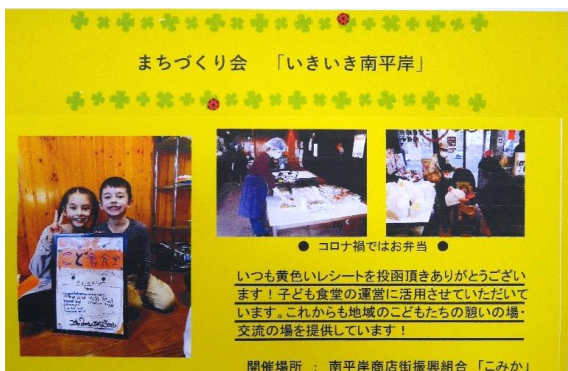 まちづくり会　「いきいき南平岸」
こども食堂
● コロナ禍ではお弁当 ●
いつも黄色いレシートを投函頂きありがとうござい
ます！子ども食堂の運営に活用させていただいて
います。これからも地域のこどもたちの憩いの場・
交流の場を提供しています！
開催場所 ： 南平岸商店街振興組合 「こみか」